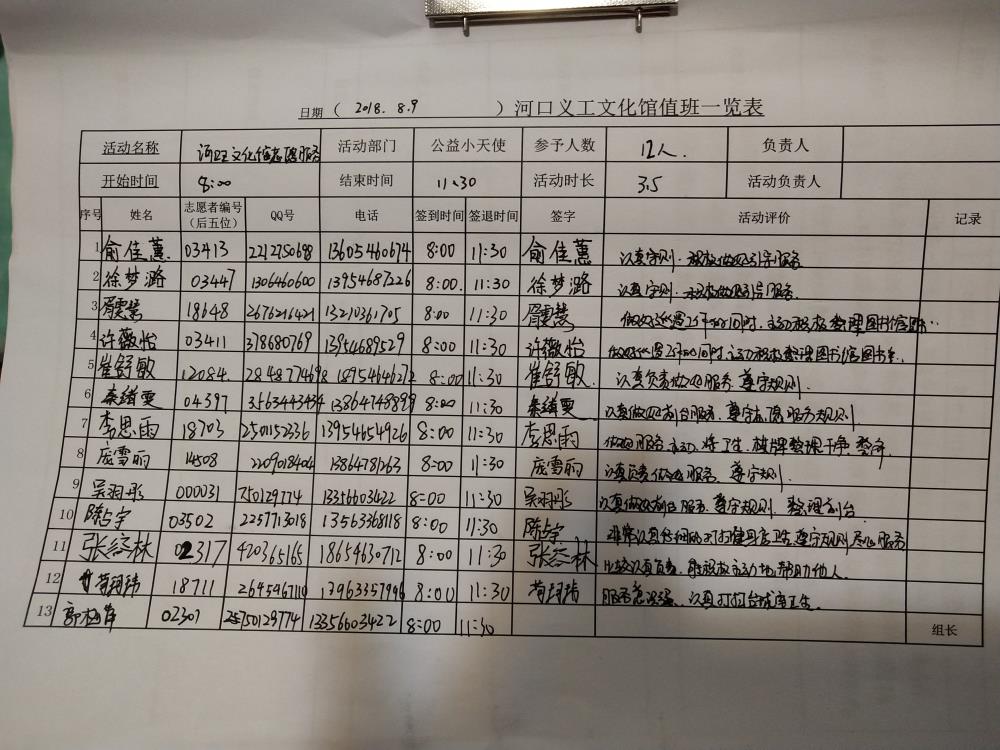 日期（ 2018. 8.9 ）河口义工文化馆值班一览表
活动名称 河口区文化馆志愿服务 活动部门 公益小天使 参予人数 12人. 负责人
开始时间 8:00 结束时间 11:30 活动时长 3.5 活动负责人
序号 姓名 志愿者编号（后五位） QQ号 电话 签到时间 签退时间 签字 活动评价 记录
1 俞佳蕙 03413 2212750698 13605460674 8:00 11:30 俞佳蕙 认真守则.积极做好引导服务
2 徐梦潞 03447 1306460600 13954687226 8:00. 11:30 徐梦潞 认真守则.积极做好引导服务.
3 18648 2676216421 13210361705 8:00 11:30
4 许薇怡 03411 378680769 13954689529 8:00 11:30 许薇怡
5 崔舒敏 12084. 2848774698 18954646272 8:00 11:30 崔舒敏. 认真负责做好服务.遵守规则.
6 秦绪雯 04397 3563443434 8:00 11:30 秦绪雯
7 李思雨 18703 2501152336 13954654926 8:00 11:30 李思雨
8 庞雪丽 14508 2209018404 13864781263 8:00 11:30 庞雪丽 认真负责做好服务.遵守规则.
9 吴羽彤 000031 750129774 13356603422 8:00 11:30 吴羽彤 认真做好前台服务.遵守规则.整理前台.
10 陈占宇 03502 2257713018 13563368118 8:00 11:30 陈占宇
11 张容林 02317 420365165 18654630712 8:00 11:30 张容林 比较认真负责.能积极主动地帮助他人.
12 苟珂玮 18711 2645467110 13963357996 8:00 11:30 苟珂玮
13 02307 25750129774 13356603422 8:00 11:30 组长